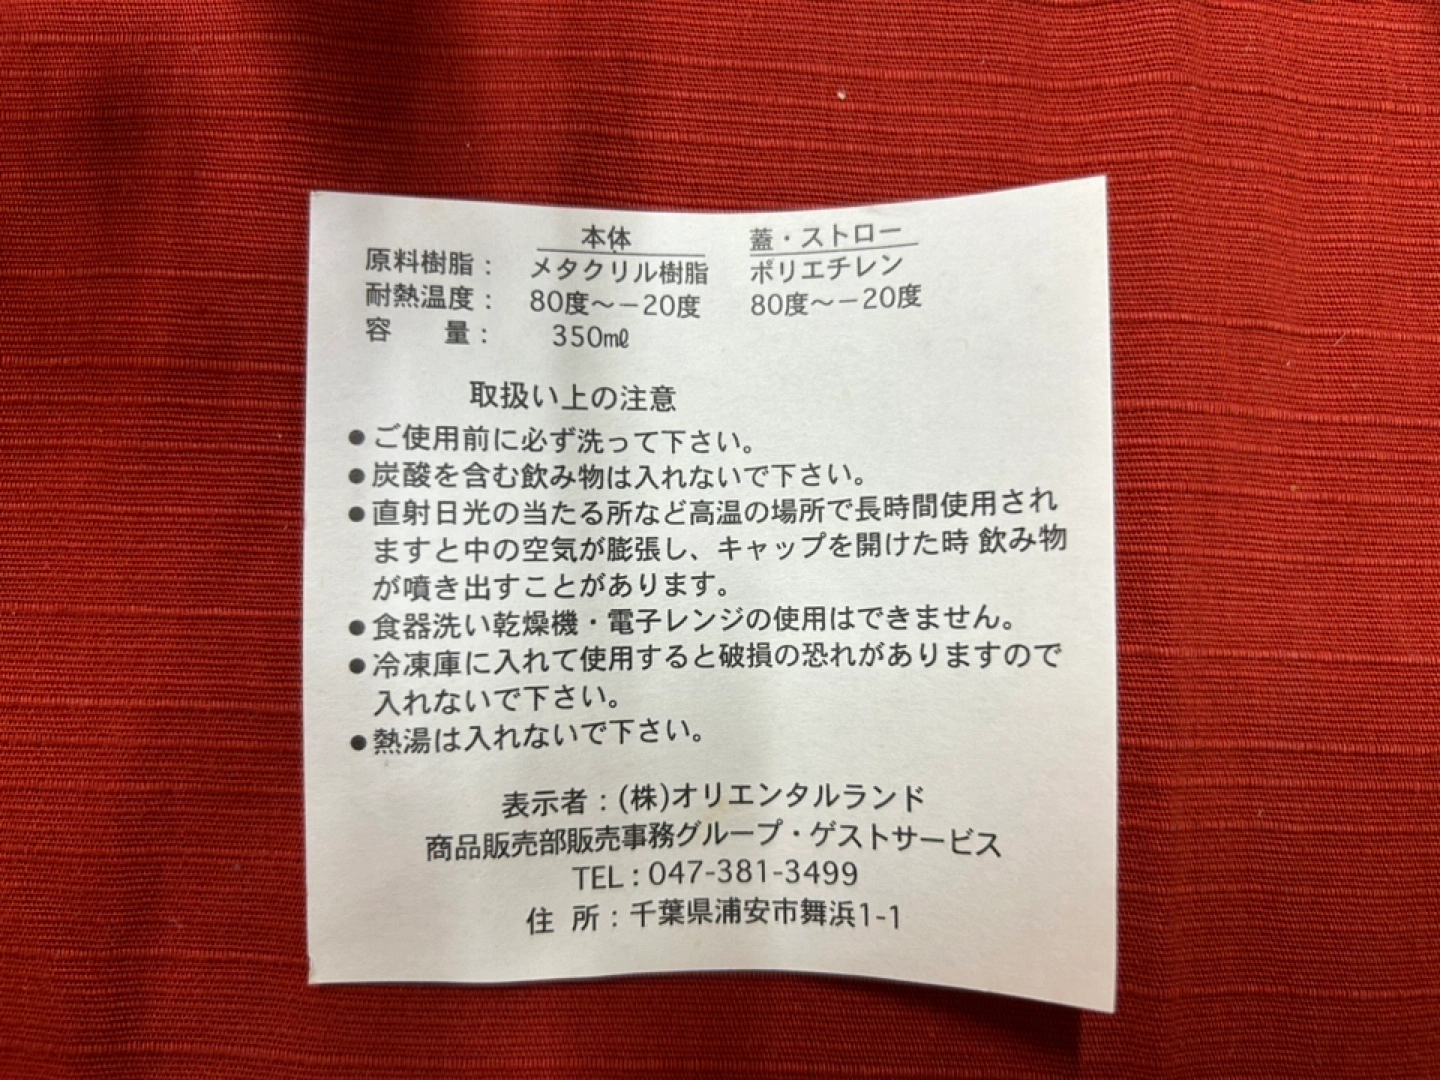 本体 蓋・ストロー
原料樹脂： メタクリル樹脂 ポリエチレン
耐熱温度： 80度～－20度 80度～－20度
容 量： 350㎖
取扱い上の注意
●ご使用前に必ず洗って下さい。
●炭酸を含む飲み物は入れないで下さい。
●直射日光の当たる所など高温の場所で長時間使用され
ますと中の空気が膨張し、キャップを開けた時 飲み物
が噴き出すことがあります。
●食器洗い乾燥機・電子レンジの使用はできません。
●冷凍庫に入れて使用すると破損の恐れがありますので
入れないで下さい。
●熱湯は入れないで下さい。
表示者：(株)オリエンタルランド
商品販売部販売事務グループ・ゲストサービス
TEL：047-381-3499
住 所：千葉県浦安市舞浜1-1